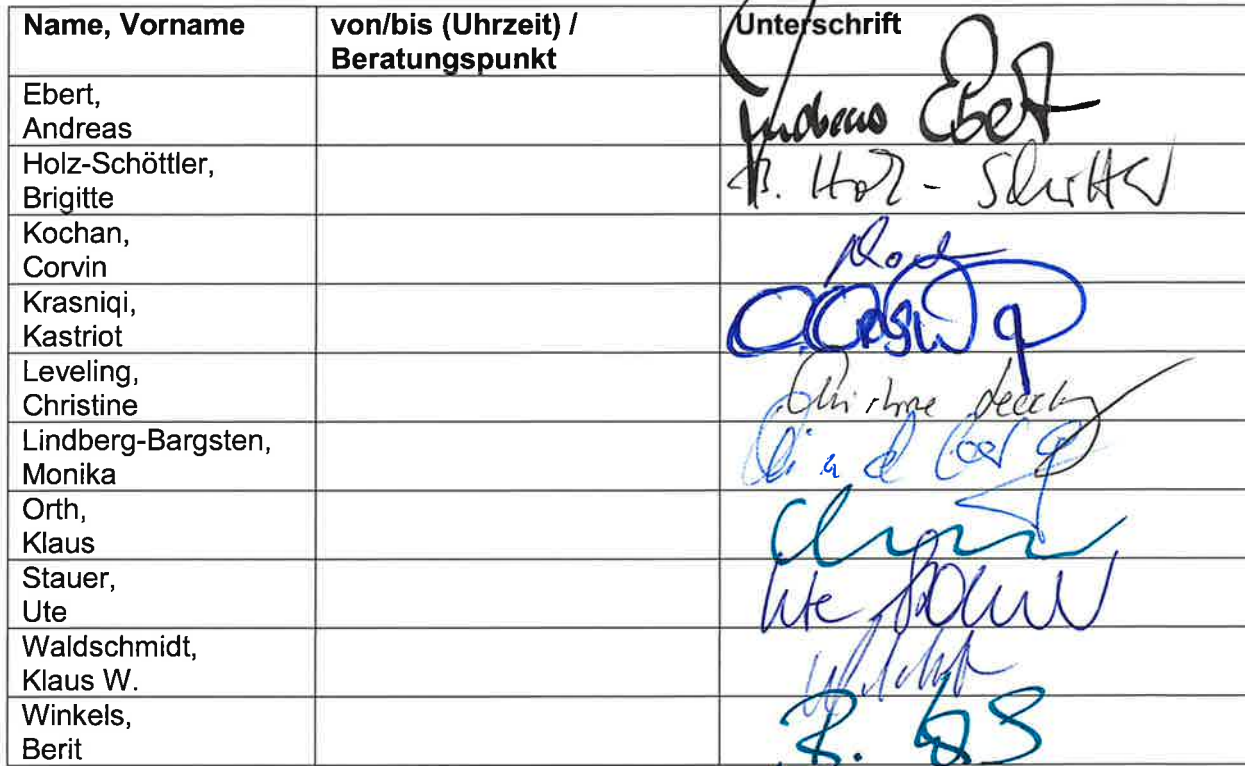 Name, Vorname
von/bis (Uhrzeit) /
Beratungspunkt
Unterschrift
Ebert,
Andreas
Andreas Ebert
Holz-Schöttler,
Brigitte
B. Holz-
Kochan,
Corvin
Krasniqi,
Kastriot
Leveling,
Christine
Christine
Lindberg-Bargsten,
Monika
Orth,
Klaus
Stauer,
Ute
Ute
Waldschmidt,
Klaus W.
Winkels,
Berit
B.